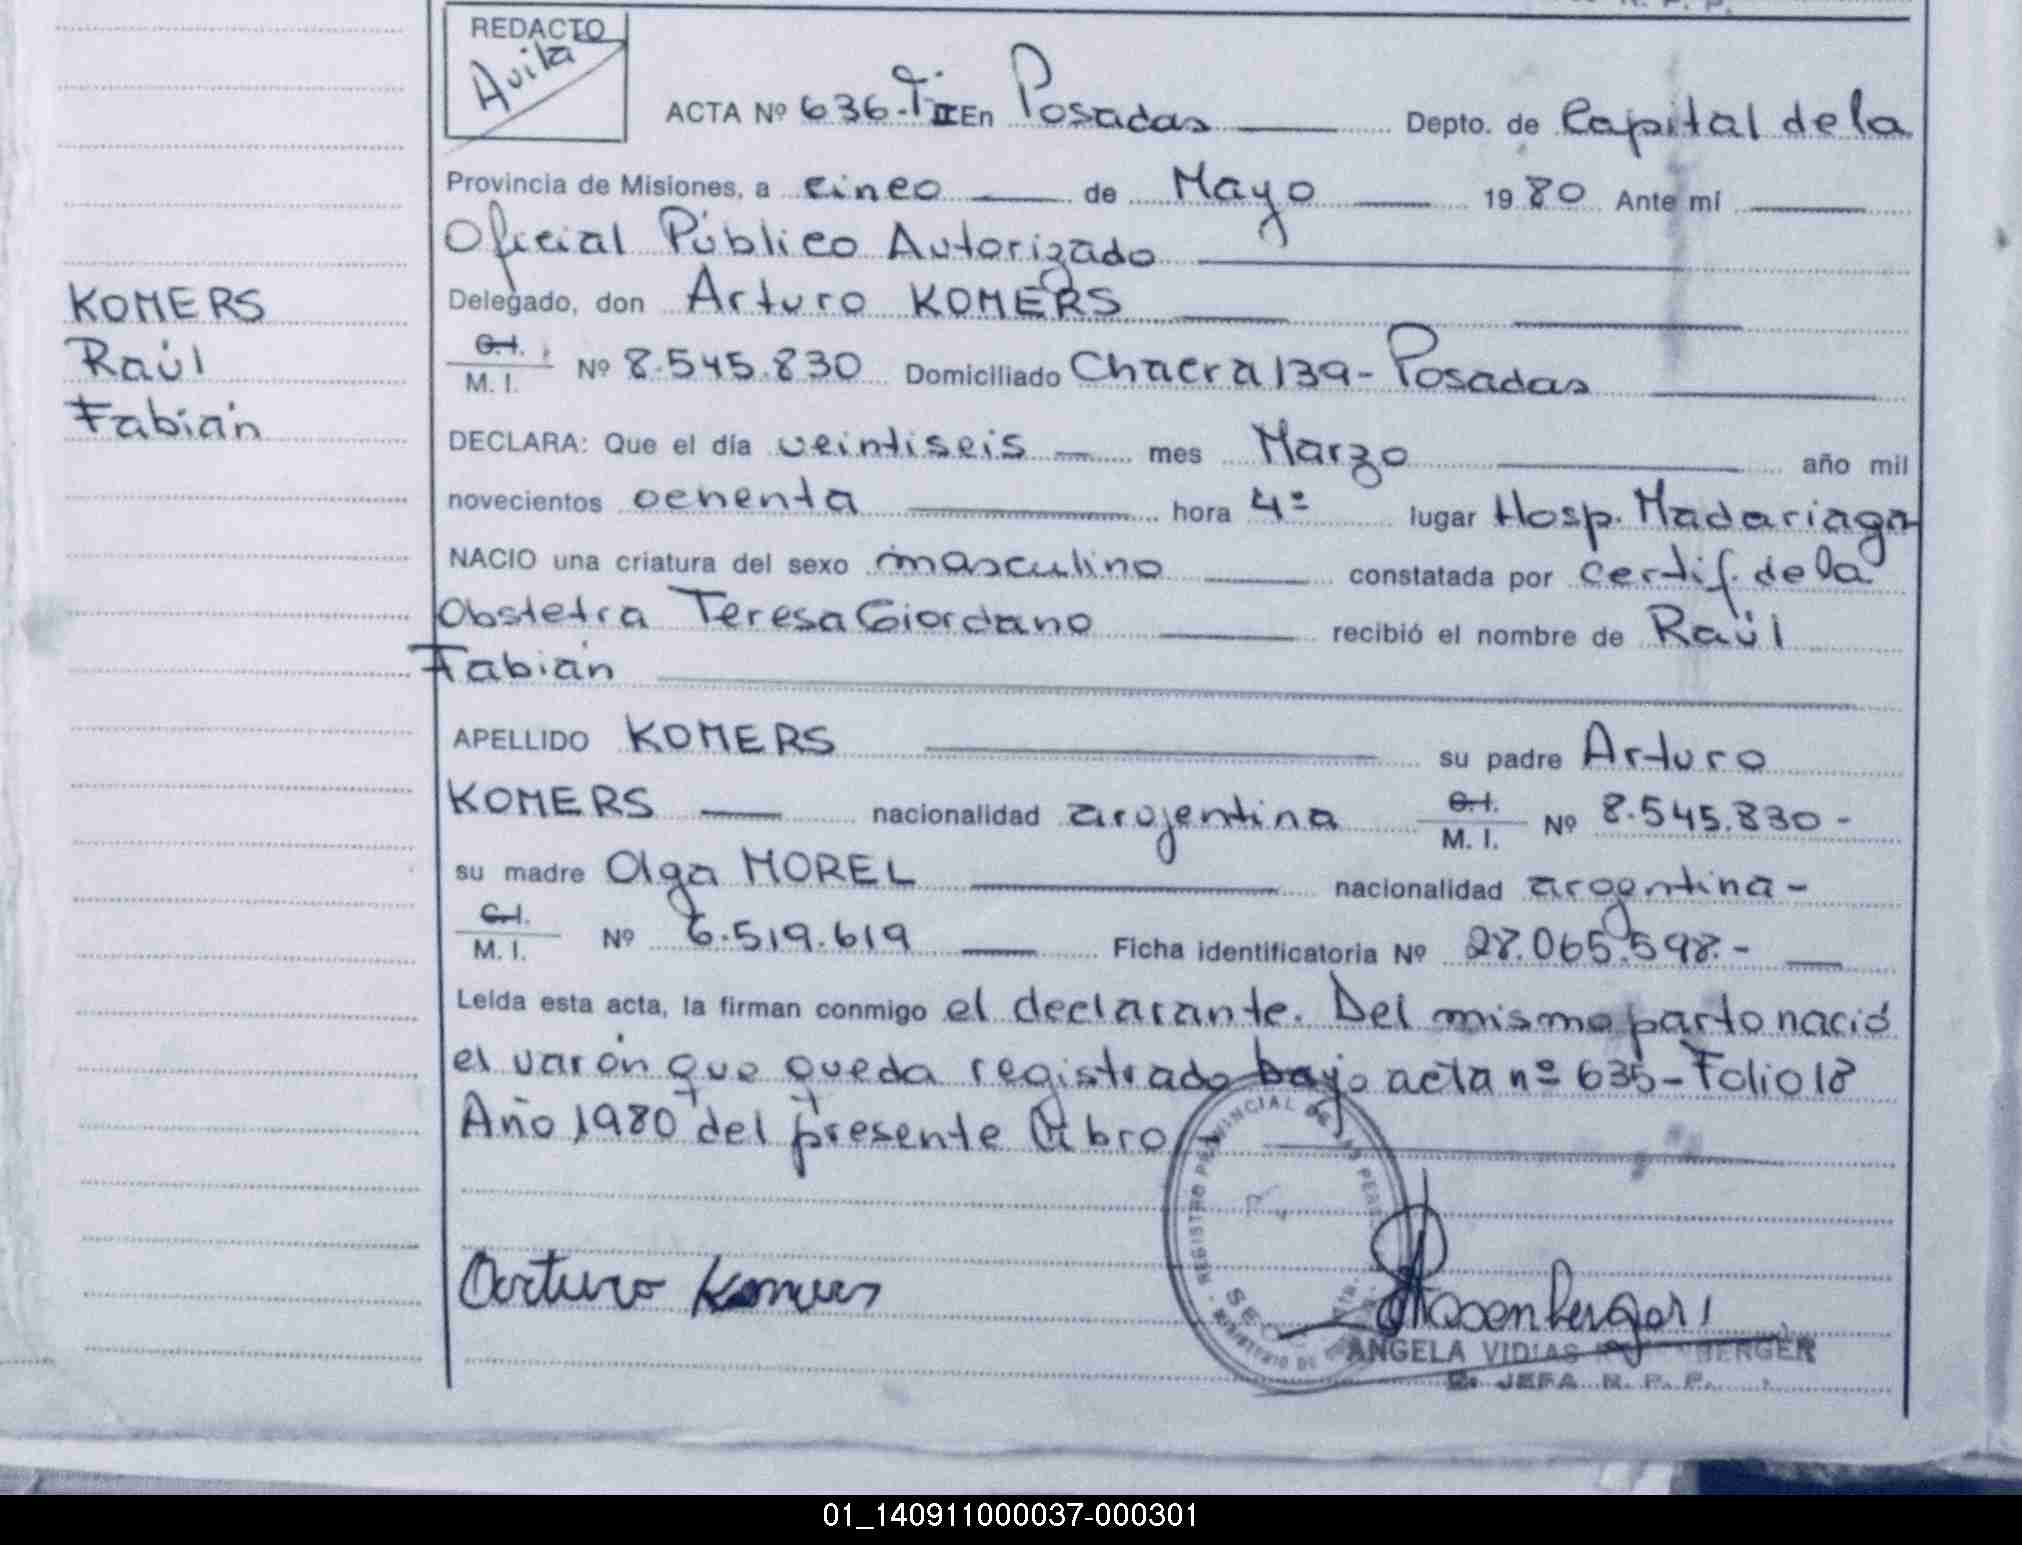 N. P. P.
REDACTO
Avila
ACTA Nº 636-T II En Posadas Depto. de Capital de la
Provincia de Misiones, a cinco de Mayo 1980 Ante mí
Oficial Público Autorizado
Delegado, don Arturo KOMERS
C.I. / M. I. Nº 8.545.830 Domiciliado Chacra 139 - Posadas
KOMERS
Raúl
Fabián
DECLARA: Que el día veintiseis mes Marzo año mil
novecientos ochenta hora 4º lugar Hosp. Madariaga
NACIO una criatura del sexo masculino constatada por certif. de la
Obstetra Teresa Giordano recibió el nombre de Raúl
Fabián
APELLIDO KOMERS su padre Arturo
KOMERS nacionalidad argentina C.I. / M. I. Nº 8.545.830 -
su madre Olga MOREL nacionalidad argentina -
C.I. / M. I. Nº 6.519.619 Ficha identificatoria Nº 28.065.598.-
Leída esta acta, la firman conmigo el declarante. Del mismo parto nació
el varón que queda registrado bajo acta nº 635 - Folio 18
Año 1980 del presente libro
REGISTRO PROVINCIAL DE LAS
Arturo Komers
Rosenberger
ANGELA VIDIAS
JEFA N. P. P.
01_140911000037-000301